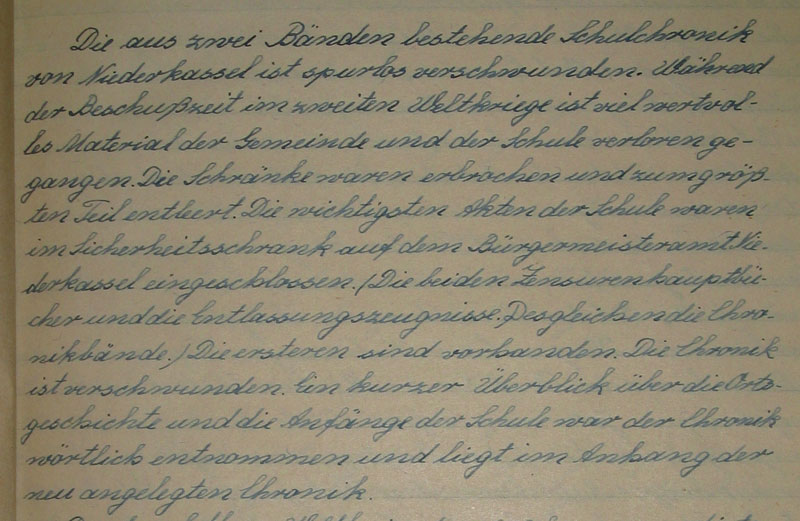 Die aus zwei Bänden bestehende Schulchronik
von Niederkassel ist spurlos verschwunden. Während
der Beschußzeit im zweiten Weltkriege ist viel wertvol-
les Material der Gemeinde und der Schule verloren ge-
gangen. Die Schränke waren erbrochen und zum größ-
ten Teil entleert. Die wichtigsten Akten der Schule waren
im Sicherheitsschrank auf dem Bürgermeisteramt Nie-
derkassel eingeschlossen. (Die beiden Zensurenhauptbü-
cher und die Entlassungszeugnisse. Desgleichen die Chro-
nikbände.) Die ersteren sind vorhanden. Die Chronik
ist verschwunden. Ein kurzer Überblick über die Orts-
geschichte und die Anfänge der Schule war der Chronik
wörtlich entnommen und liegt im Anhang der
neu angelegten Chronik.